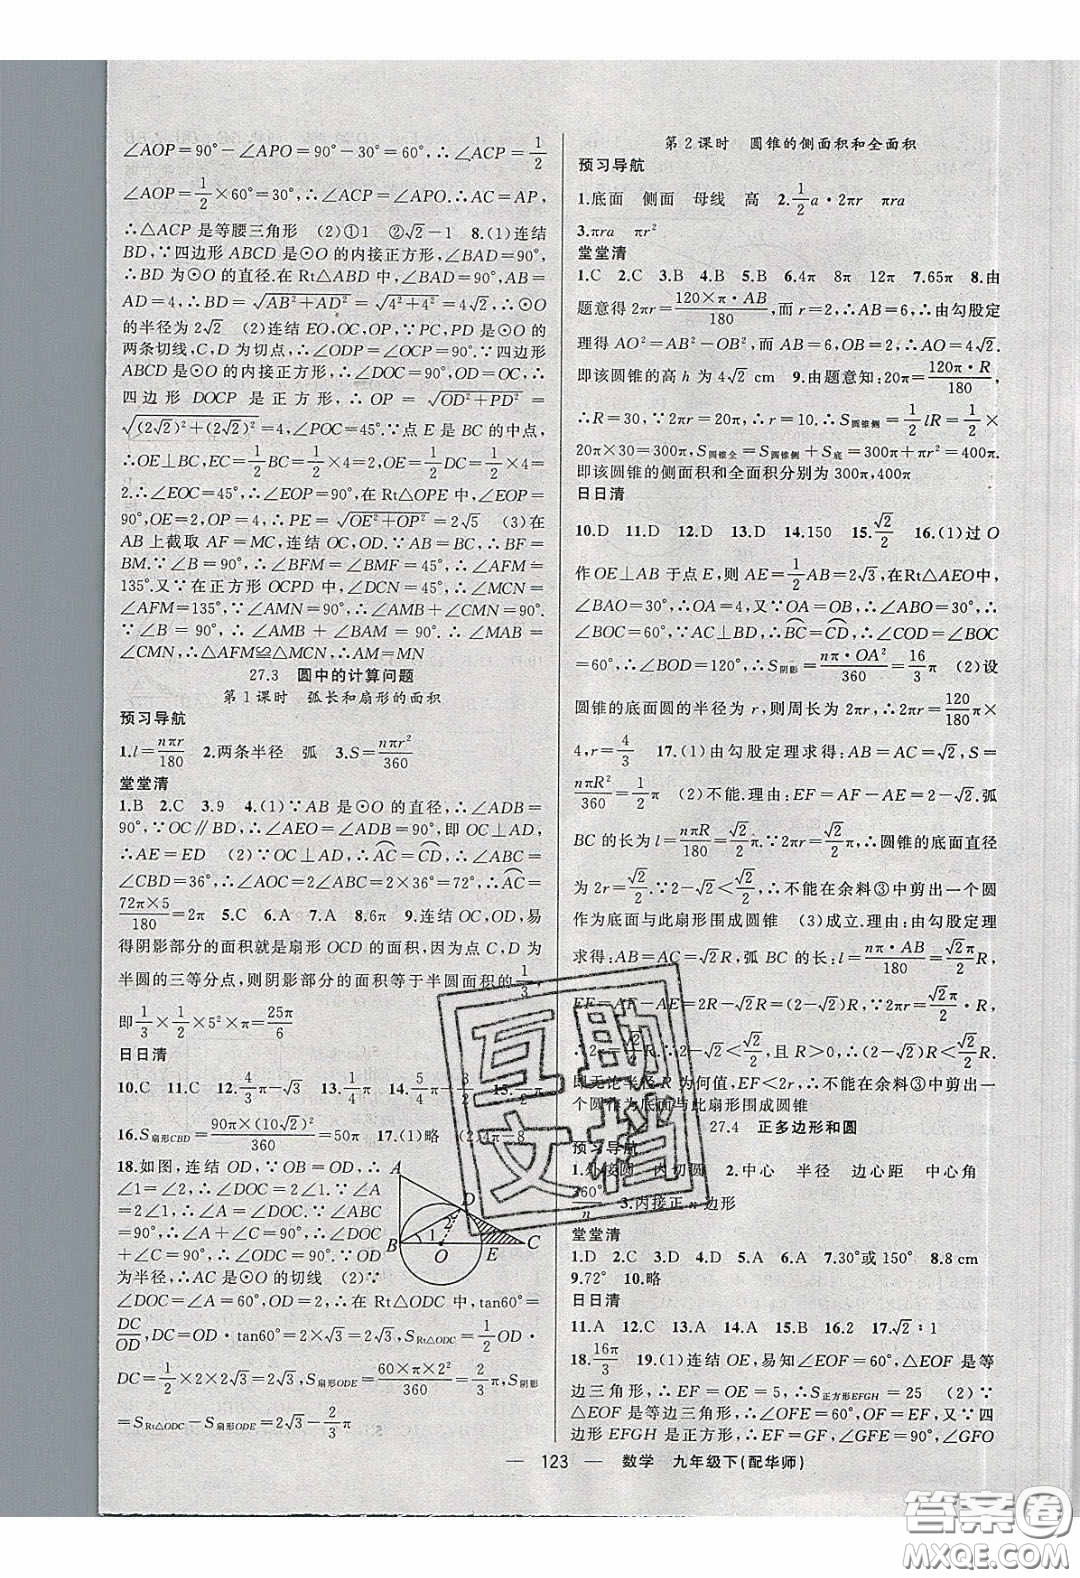 ∠AOP=90°-∠APO=90°-30°=60°,∴∠ACP=1/2
∠AOP=1/2×60°=30°,∴∠ACP=∠APO.∴AC=AP,
∴△ACP 是等腰三角形 (2)①1 ②√2-1 8.(1)连结
BD,∵四边形 ABCD 是⊙O 的内接正方形,∴∠BAD=90°,
∴BD 为⊙O 的直径.在 Rt△ABD 中,∠BAD=90°,AB=
AD=4,∴BD=√(AB²+AD²)=√(4²+4²)=4√2,∴⊙O
的半径为 2√2 (2)连结 EO,OC,OP,∵PC,PD 是⊙O 的
两条切线,C,D 为切点,∴∠ODP=∠OCP=90°.∵四边形
ABCD 是⊙O 的内接正方形,∴∠DOC=90°,OD=OC.∴
四边形 DOCP 是正方形,∴OP=√(OD²+PD²)=
√((2√2)²+(2√2)²)=4,∠POC=45°.∵点 E 是 BC 的中点,
∴OE⊥BC,EC=1/2BC=1/2×4=2,OE=1/2DC=1/2×4=
2.∴∠EOC=45°,∴∠EOP=90°.在 Rt△OPE 中,∠EOP=
90°,OE=2,OP=4,∴PE=√(OE²+OP²)=2√5 (3)在
AB 上截取 AF=MC,连结 FM.∵AB=BC,∴BF=
BM.∵∠B=90°,∴∠BFM=∠BMF=45°,∴∠AFM=
135°.又∵在正方形 OCPD 中,∠DCN=45°,∴∠MCN=
∠AFM=135°,∵∠AMN=90°,∴∠AMF+∠CMN=90°.
∵∠B=90°,∴∠AMB+∠BAM=90°.∴∠MAB=
∠CMN,∴△AFM≌△MCN,∴AM=MN
27.3 圆中的计算问题
第1课时 弧长和扇形的面积
预习导航
1.l=nπr/180 2.两条半径 弧 3.S=nπr²/360
堂堂清
1.B 2.C 3.9 4.(1)∵AB 是⊙O 的直径,∴∠ADB=
90°,∵OC∥BD,∴∠AEO=∠ADB=90°,即 OC⊥AD,
∴AE=ED (2)∵OC⊥AD,∴AC=CD,∴∠ABC=
∠CBD=36°,∴∠AOC=2∠ABC=2×36°=72°,∴AC=
72π×5/180=2π 5.C 6.A 7.A 8.6π 9.连结 OC,OD,易
得阴影部分的面积就是扇形 OCD 的面积,因为点 C,D 为
半圆的三等分点,则阴影部分的面积等于半圆面积的1/3,
即1/3×1/2×5²×π=25π/6
日日清
10.C 11.C 12.4/3π-√3 13.1/4π 14.5/4π-3/2
16.S扇形CBD=90π×(10√2)²/360=50π 17.(1)略 (2)4π-8
18.如图,连结 OD,∵OB=OD,∴
∠1=∠2,∴∠DOC=2∠1.∵∠A
=2∠1,∴∠A=∠DOC.∵∠ABC
=90°,∴∠A+∠C=90°,∴∠DOC
+∠C=90°,∴∠ODC=90°.∵OD
为半径,∴AC 是⊙O 的切线 (2)∵
∠DOC=∠A=60°,∴在 Rt△ODC 中,tan60°=
DC/OD,DC=OD·tan60°=2×√3=2√3,S Rt△ODC=1/2OD·
DC=1/2×2×2√3=2√3,S扇形ODE=60×π×2²/360=2/3π,S阴影
=S Rt△ODC-S扇形ODE=2√3-2/3π
A
D
2
B
1
O
E
C
第2课时 圆锥的侧面积和全面积
预习导航
1.底面 侧面 母线 高 2.1/2a·2πr πra
3.πra πr²
堂堂清
1.C 2.C 3.B 4.B 5.B 6.4π 8π 12π 7.65π 8.由
题意得 2πr=120×π·AB/180,而 r=2,∴AB=6,∴由勾股定
理得 AO²=AB²-OB²,而 AB=6,OB=2,∴AO=4√2.
即该圆锥的高 h 为 4√2 cm 9.由题意知:20π=120π·R/180,
∴R=30,∵2πr=20π,∴r=10.∴S圆锥侧=1/2lR=1/2×
20π×30=300π,S圆锥全=S圆锥侧+S底=300π+πr²=400π.
即该圆锥的侧面积和全面积分别为 300π,400π
日日清
10.D 11.D 12.D 13.D 14.150 15.√2/2 16.(1)过 O
作 OE⊥AB 于点 E,则 AE=1/2AB=2√3,在Rt△AEO中,
∠BAO=30°,∴OA=4,又∵OA=OB,∴∠ABO=30°,∴
∠BOC=60°,∵∴BC=CD,∴∠COD=∠BOC
=60°,∴∠BOD=120°,∴S阴影=nπ·OA²/360=16/3π (2)设
圆锥的底面圆的半径为 r,则周长为 2πr,∴2πr=120/180π×
4,r=4/3 17.(1)由勾股定理求得:AB=AC=√2,S=
nπR²/360=1/2π (2)不能.理由:EF=AF-AE=2-√2.弧
BC 的长为 l=nπR/180=√2/2π.∵2πr=√2/2π,∴圆锥的底面直径
为 2r=√2/2.∵2-√2<√2/2,∴不能在余料③中剪出一个圆
作为底面与此扇形围成圆锥 (3)成立.理由:由勾股定理
求得:AB=AC=√2R,弧 BC 的长:l=nπ·AB/180=√2π/2R,
EF=AF-AE=2R-√2R=(2-√2)R,∵2πr=√2π/2·R,
∴2r=√2/2R.∵2-√2<√2/2,且 R>0,∴(2-√2)R<√2/2R,
即无论半径 R 为何值,EF<2r,∴不能在余料③中剪出一
个圆作为底面与此扇形围成圆锥
27.4 正多边形和圆
预习导航
1.外接圆 内切圆 2.中心 半径 边心距 中心角
360°/n 3.内接正 n 边形
堂堂清
1.D 2.C 3.D 4.D 5.A 6.A 7.30°或 150° 8.8 cm
9.72° 10.略
日日清
11.A 12.C 13.A 14.A 15.B 16.2 17.√2∶1
18.16π/3 19.(1)连结 OE,易知∠EOF=60°,△EOF 是等
边三角形,∴EF=OE=5,∴S正方形EFGH=25 (2)∵
△EOF 是等边三角形,∴∠OFE=60°,OF=EF,又∵四
边形 EFGH 是正方形,∴EF=GF,∠GFE=90°,∠GFO
— 123 — 数学 九年级下(配华师)
互助文档
答案圈
MXQE.COM